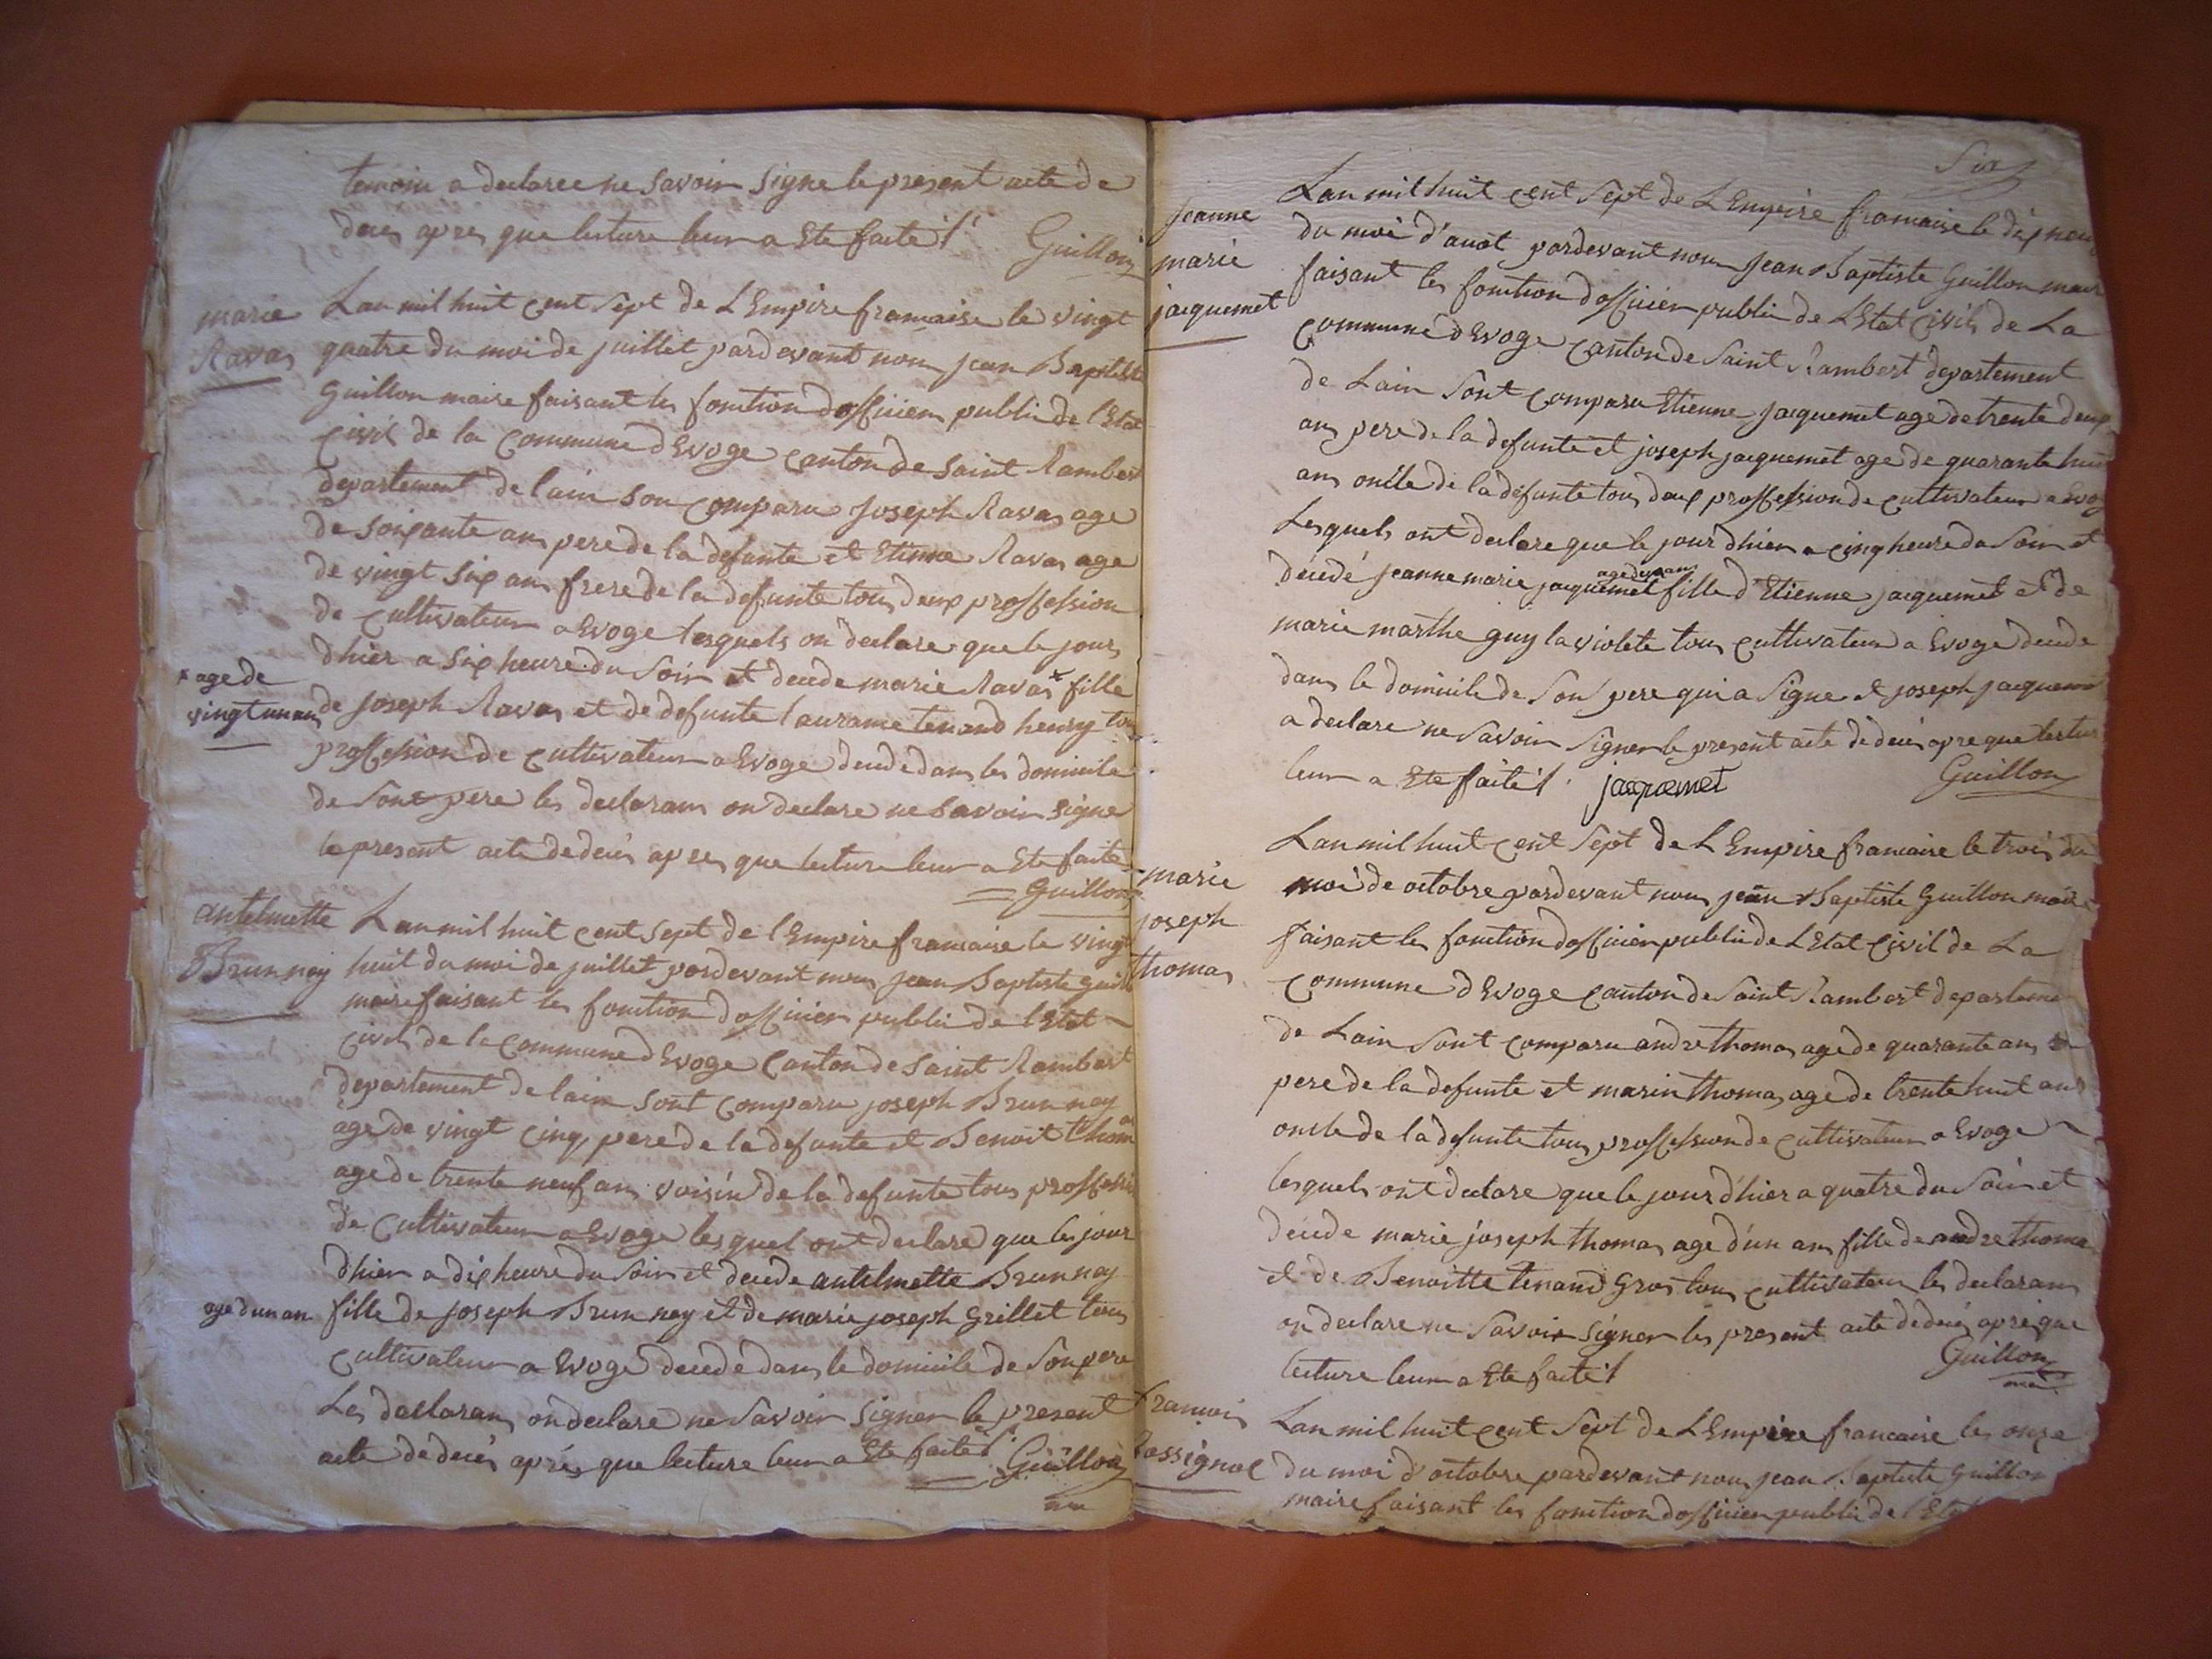 temoin a declaree ne savoir signe le present acte de
deces apres que lecture leur a Ete faite
Guillon
marie
Ravas
Lan mil huit cent sept de L'Empire francaise le vingt
quatre du moi de juillet pardevant nous jean Baptiste
Guillon maire faisant les fonction d'officier public de l'Etat
civil de la commune d'Evoge canton de saint Rambert
departement de lain son comparu Joseph Ravas age
de soixante ans pere de la defunte et Etienne Ravas age
de vingt six ans frere de la defunte tous deux proffession
de cultivateur a Evoge lesquels on declare que le jour
d'hier a six heure du soir et decede marie Ravas * fille
* age de
vingt un ans
de joseph Ravas et de defunte laurance tenand henry tous
proffession de cultivateur a Evoge decede dans les domicile
de son pere les declarans on declare ne savoir signe
le present acte de deces apres que lecture leur a Ete faite
Guillon
antelmette
Brunney
Lan mil huit cent sept de l'Empire francaise le vingt
huit du moi de juillet pardevant nous jean Baptiste guill
maire faisant les fonction d'officier public de l'Etat
civil de la commune d'Evoge canton de saint Rambert
departement de lain sont comparu joseph Brunney
age de vingt cinq pere de la defunte et Benoit thomas
age de trente neuf ans voisin de la defunte tous proffessi
de cultivateur a Evoge lesquel ont declare que les jour
d'hier a dix heure du soir et decede antelmette Brunney
age d'un an
fille de joseph Brunney et de marie joseph Grillet tous
cultivateur a Evoge decede dans le domicile de son pere
Les declarans on declare ne savoir signer le present
acte de deces après que lecture leur a Ete faite
Guillon
Six
Jeanne
marie
jacquemet
Lan mil huit cent sept de L'Empire francaise le dix neuf
du moi d'auot pardevant nous Jean Baptiste Guillon maire
faisant les fonction d'officier public de L'Etat Civil de La
commune d'Evoge canton de Saint Rambert departement
de Lain sont comparu Etienne jacquemet age de trente deux
ans pere de la defunte et joseph jacquemet age de quarante huit
ans oncle de la defunte tous deux proffession de cultivateur a Evog
Lesquels ont declare que le jour d'hier a cinq heure du soir et
age d'un an
décedé jeanne marie jacquemet fille d'Etienne jacquemet et de
marie marthe guy la violete tous cultivateur a Evoge decede
dans le domicile de son pere qui a signe et joseph jacquemet
a declare ne savoir signer le present acte de deces apre que lectur
leur a Ete faite
jacquemet
Guillon
marie
joseph
thomas
Lan mil huit cent sept de L'Empire francaise le trois du
moi de octobre pardevant nous jean Baptiste Guillon maire
faisant les fonction d'officier public de L'Etat Civil de La
commune d'Evoge canton de Saint Rambert departeme
de Lain sont comparu andre thomas age de quarante ans
pere de la defunte et marin thomas age de trente huit ans
oncle de la defunte tous proffession de cultivateur a Evoge
lesquels ont declare que le jour d'hier a quatre du soir et
decede marie joseph thomas age d'un ans fille de andre thoma
et de Benoitte tenand Gros tous cultivateur les declarans
on declare ne savoir signer les present acte de deces apre que
lecture leur a Ete faite
Guillon
francois
Rossignol
Lan mil huit cent sept de L'Empire francaise les onze
du moi d'octobre pardevant nous jean Baptiste Guillon
maire faisant les fonction d'officier public de l'Etat